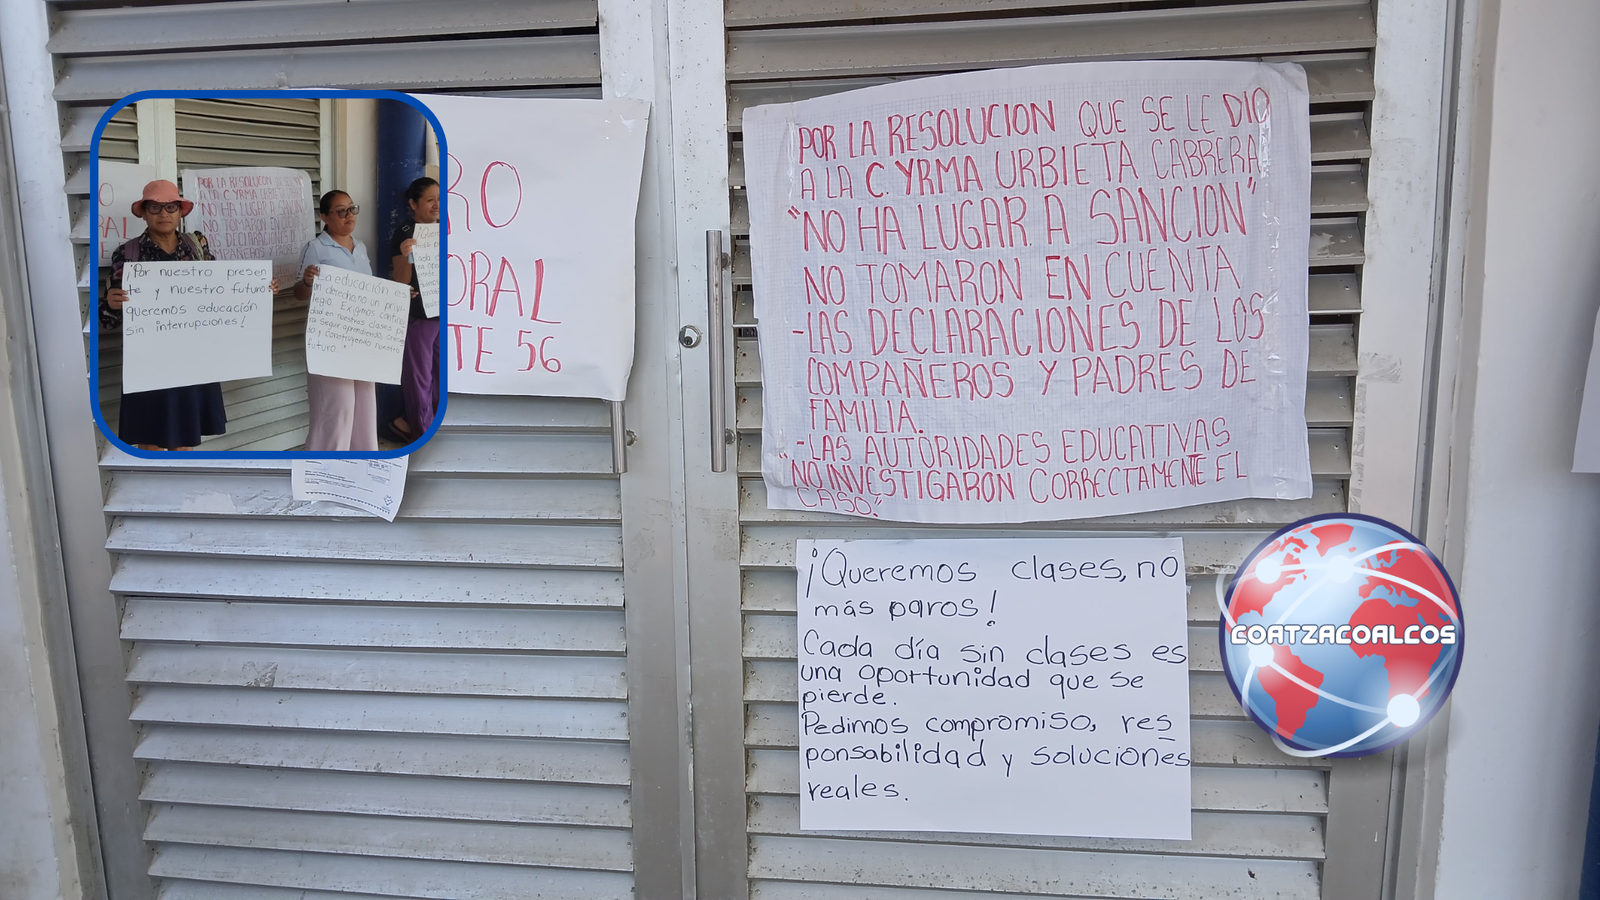 RO
ORAL
TE 56
POR LA RESOLUCION QUE SE LE DIO
A LA C. YRMA URBIETA CABRERA
"NO HA LUGAR A SANCION"
NO TOMARON EN CUENTA
-LAS DECLARACIONES DE LOS
COMPAÑEROS Y PADRES DE
FAMILIA.
-LAS AUTORIDADES EDUCATIVAS
"NO INVESTIGARON CORRECTAMENTE EL
CASO."
¡Queremos clases, no
más paros!
Cada día sin clases es
una oportunidad que se
pierde.
Pedimos compromiso, res
ponsabilidad y soluciones
reales.
¡Por nuestro presen
te y nuestro futuro:
queremos educación
sin interrupciones!
La educación es
un derecho, no un privi
legio. Exigimos continui
dad en nuestras clases pa
ra seguir aprendiendo, crecien
do y construyendo nuestro
futuro."
POR LA RESOLUCION
A LA C. YRMA URBIETA
"NO HA LUGAR A SANC
NO TOMARON EN
LAS DECLARACIONES
RAL
COATZACOALCOS